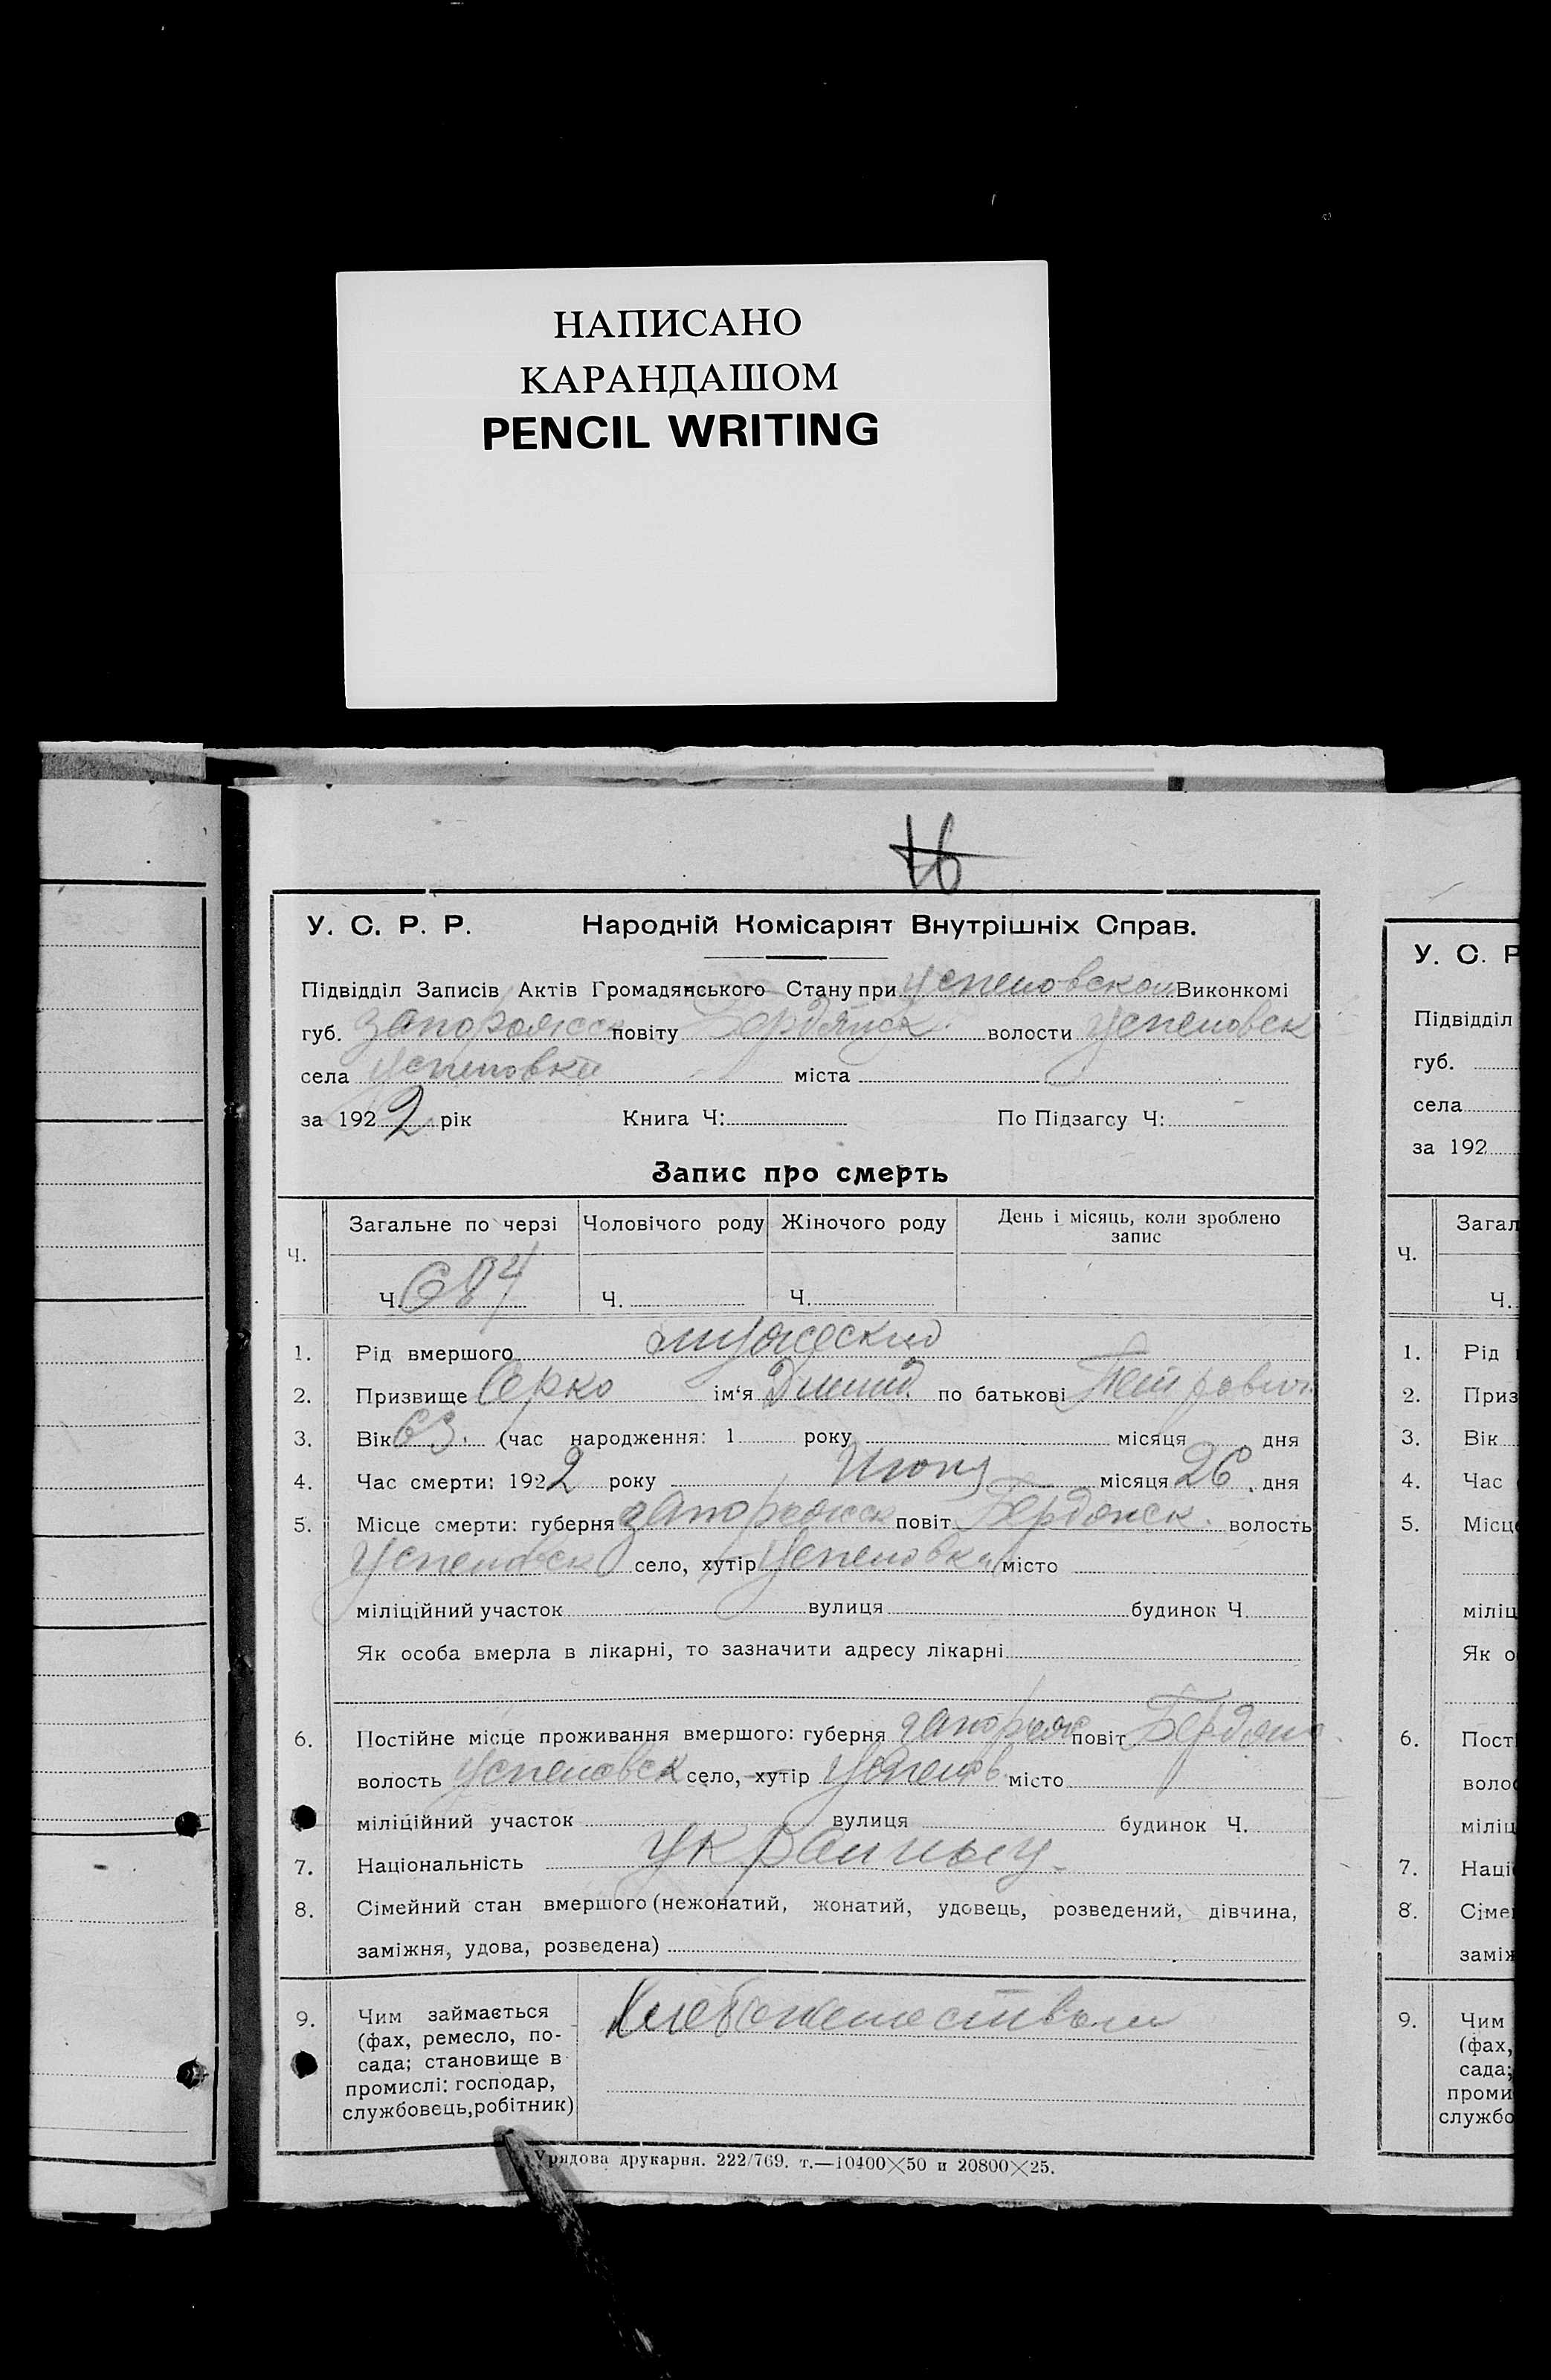 НАПИСАНО
КАРАНДАШОМ
PENCIL WRITING
У. С. Р. Р. Народній Комісаріят Внутрішніх Справ.
Підвідділ Записів Актів Громадянського Стану при Успеновском Виконкомі
губ. Запорожск повіту Бердянск. волости Успеновск
села Успеновки міста
за 1922 рік Книга Ч: По Підзагсу Ч:
Запис про смерть
Ч. Загальне по черзі Чоловічого роду Жіночого роду День і місяць, коли зроблено запис
Ч. 684 Ч. Ч.
1. Рід вмершого мужеский
2. Призвище Серко ім'я Димид по батькові Петрович
3. Вік 63. (час народження: 1 року місяця дня
4. Час смерти: 1922 року Июня місяця 26 дня
5. Місце смерти: губерня Запорожск повіт Бердянск. волость
Успеновск село, хутір Успеновка місто
міліційний участок вулиця будинок Ч.
Як особа вмерла в лікарні, то зазначити адресу лікарні
6. Постійне місце проживання вмершого: губерня Запорож повіт Бердянс
волость Успеновск село, хутір Успенов. місто
міліційний участок вулиця будинок Ч.
7. Національність
8. Сімейний стан вмершого (нежонатий, жонатий, удовець, розведений, дівчина,
заміжня, удова, розведена)
9. Чим займається Хлебопашеством
(фах, ремесло, по-
сада; становище в
промислі: господар,
службовець, робітник)
Урядова друкарня. 222/769. т.—10400×50 и 20800×25.
У. С. Р
Підвідділ
губ.
села
за 192
Ч. Загал
Ч.
1. Рід
2. Приз
3. Вік
4. Час
5. Місц
міліц
Як о
6. Пост
воло
міліц
7. Наці
8. Сіме
замі
9. Чим
(фах,
сада;
проми
службо